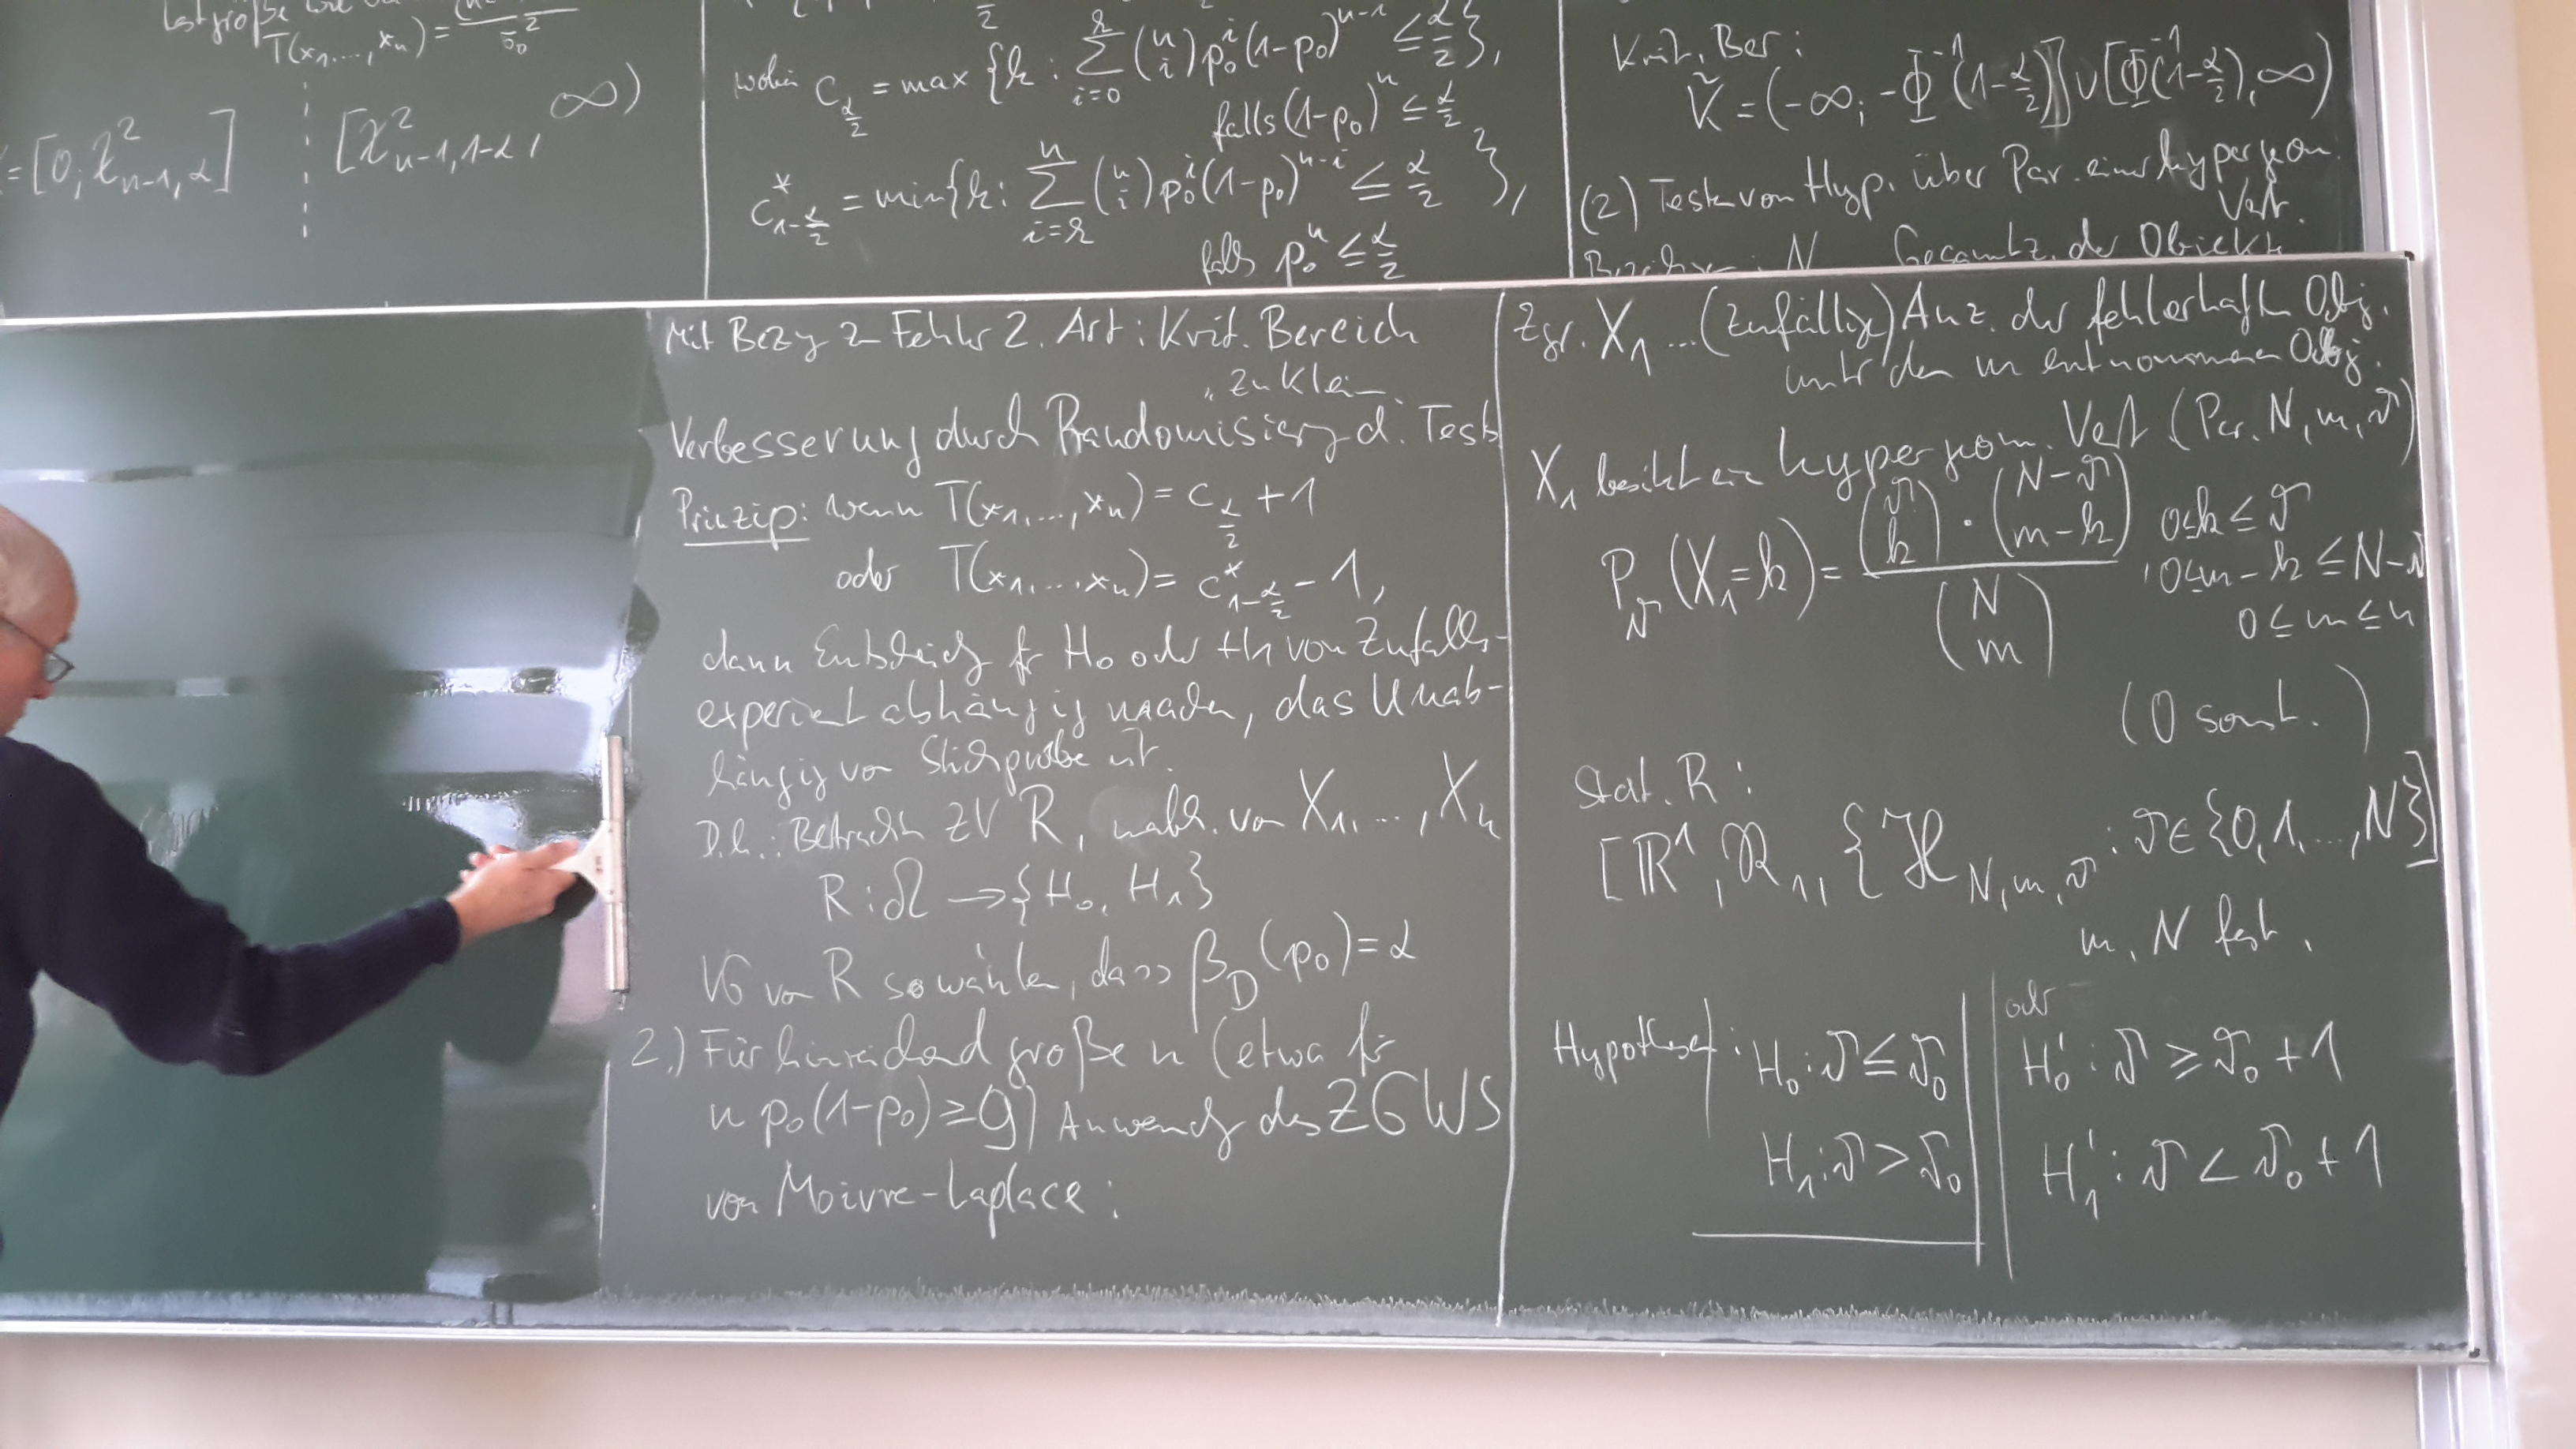 Testgröße wie
T(x₁,...,xₙ) =
= [0, χ²ₙ₋₁,α] [χ²ₙ₋₁,₁₋α, ∞)
wobei c_{α/2} = max {k : ∑_{i=0}^{k} (n über i) p₀^i (1-p₀)^{n-i} ≤ α/2},
falls (1-p₀)^n ≤ α/2
c*_{1-α/2} = min {k : ∑_{i=k}^{n} (n über i) p₀^i (1-p₀)^{n-i} ≤ α/2},
falls p₀^n ≤ α/2
Krit. Ber :
K̃ = (-∞; -Φ⁻¹(1-α/2)] ∪ [Φ⁻¹(1-α/2), ∞)
(2) Testen von Hyp. über Par. einer hypergeom.
Vert.
N Gesamtz. der Objekte
Mit Bezug zu Fehler 2. Art : Krit. Bereich
"zu klein"
Verbesserung durch Randomisierg d. Tests
Prinzip: wenn T(x₁,...,xₙ) = c_{α/2} + 1
oder T(x₁,...,xₙ) = c*_{1-α/2} - 1,
dann Entscheidg für H₀ oder H₁ von Zufalls-
experiment abhängig machen, das Unab-
hängig von Stichprobe ist.
D.h.: Betrachten ZV R, unabh. von X₁,...,Xₙ
R : Ω → {H₀, H₁}
VG von R so wählen, dass β_D(p₀) = α
2.) Für hinreichend große n (etwa für
n p₀(1-p₀) ≥ 9) Anwendg des ZGWS
von Moivre-Laplace :
Zgr. X₁ ... (zufällige) Anz. der fehlerhaften Obj.
unter den m entnommenen Obj.
X₁ besitzt eine hypergeom. Vert (Par. N, m, ϑ)
P_ϑ(X₁=k) = (ϑ über k) · (N-ϑ über m-k) / (N über m) , 0≤k≤ϑ
0≤m-k≤N-ϑ
0≤m≤n
(0 sonst.)
Stat. R :
[ℝ¹, 𝓡₁, {𝓗_{N,m,ϑ} : ϑ∈{0,1,...,N}}]
m, N fest.
Hypothesen : H₀ : ϑ ≤ ϑ₀ oder H₀' : ϑ ≥ ϑ₀ + 1
H₁ : ϑ > ϑ₀ H₁' : ϑ < ϑ₀ + 1